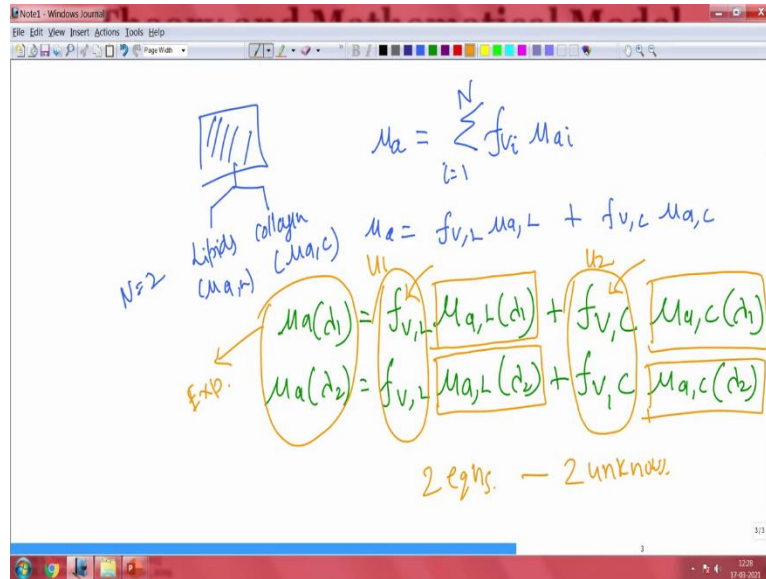 Note1 - Windows Journal
Theory and Mathematical Model
File Edit View Insert Actions Tools Help
Page Width
B I
μa = Σ fvi μai
N
i=1
Lipids collagen
(μa,L) (μa,C)
N=2
μa = fv,L μa,L + fv,C μa,C
U1 U2
μa(λ1) = fv,L μa,L(λ1) + fv,C μa,C(λ1)
μa(λ2) = fv,L μa,L(λ2) + fv,C μa,C(λ2)
Exp.
2 eqns. — 2 unknows.
3/3
3
1228
17-03-2021